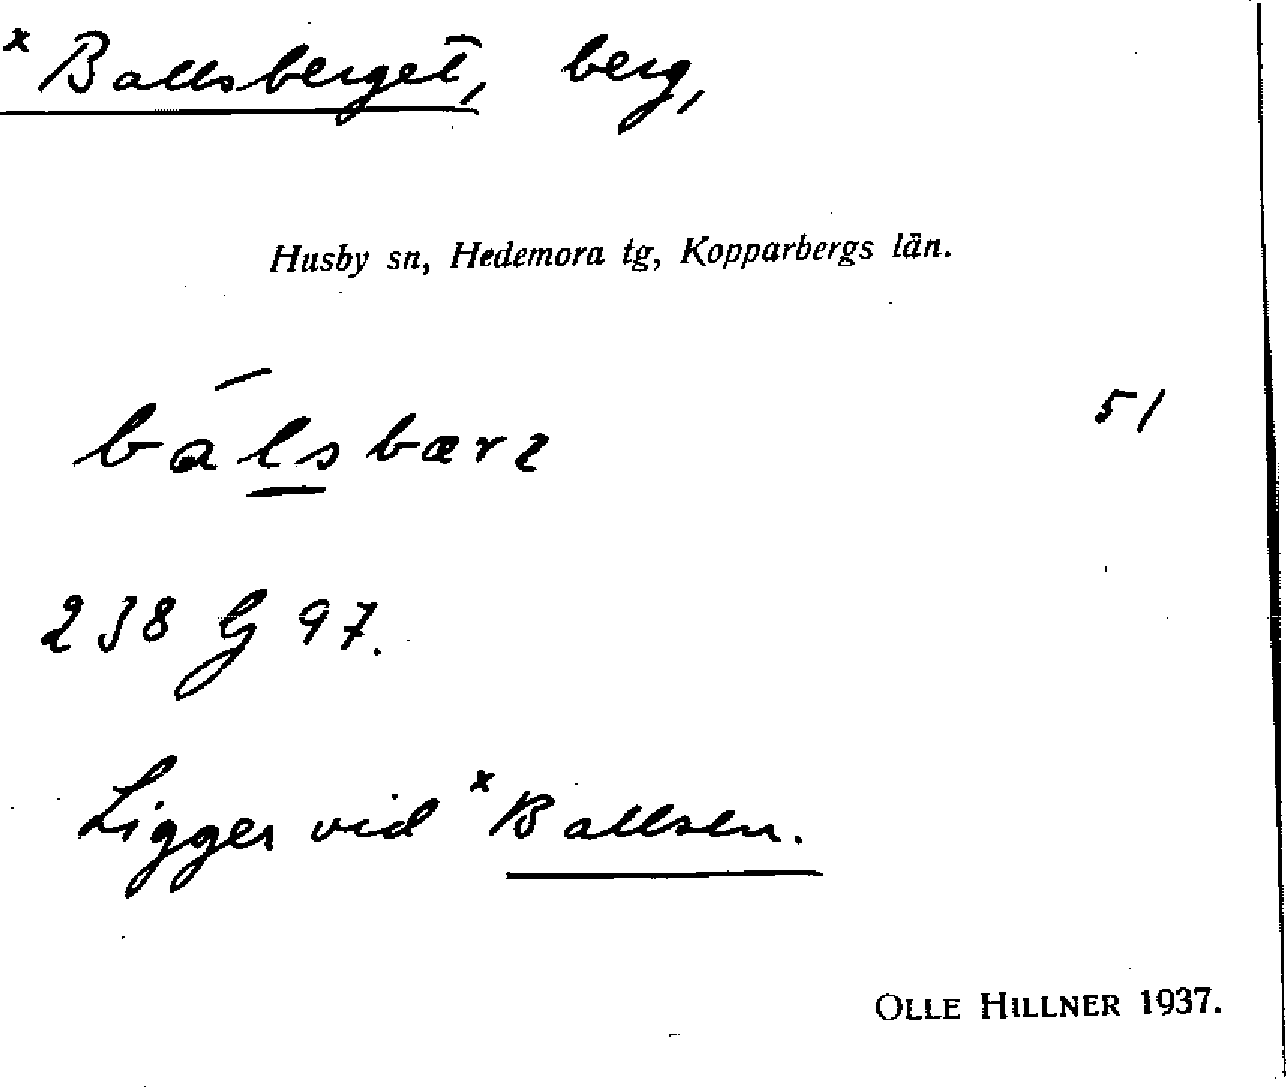 x Ballsberget, berg,
Husby sn, Hedemora tg, Kopparbergs län.
51
238 G 97.
Ligger vid x Ballsen.
OLLE HILLNER 1937.